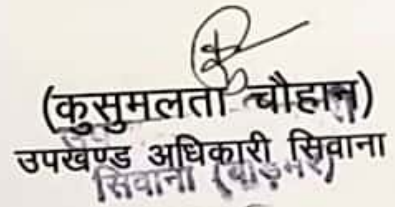 (कुसुमलता चौहान)
उपखण्ड अधिकारी सिवाना
सिवाना (बाड़मेर)